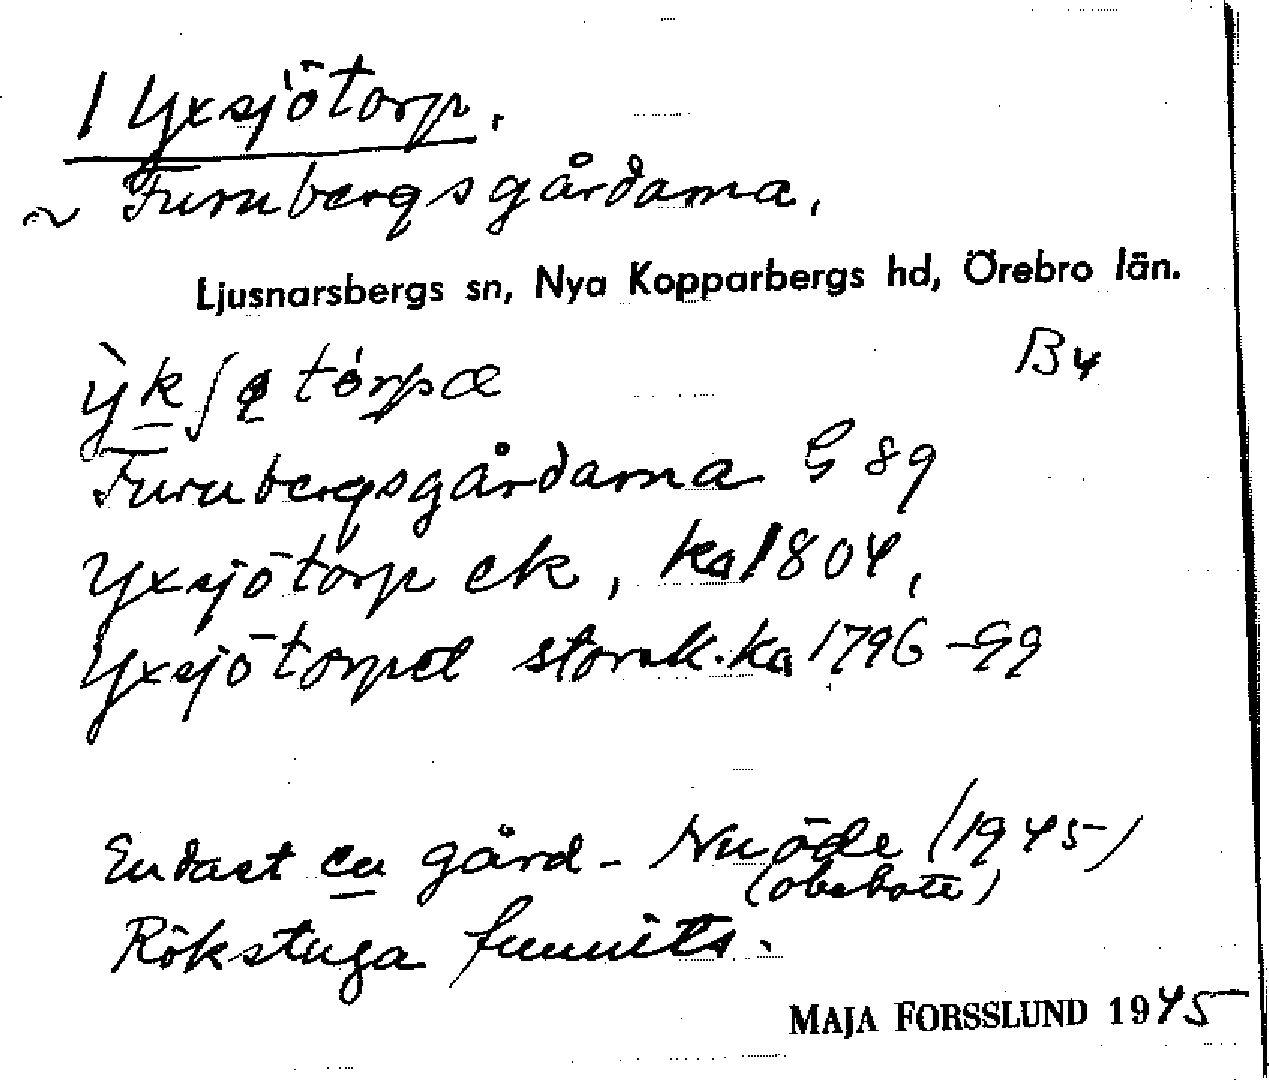 1 Yxsjötorp.
~ Furubergsgårdarna.
Ljusnarsbergs sn, Nya Kopparbergs hd, Örebro län.
B4
Furubergsgårdarna G 89
Yxsjötorp ek, ka 1804,
Yxsjötorpet storsk. ka 1796-99
Endast en gård - Nu öde (1945)
(obebott)
Rökstuga funnits.
MAJA FORSSLUND 1945